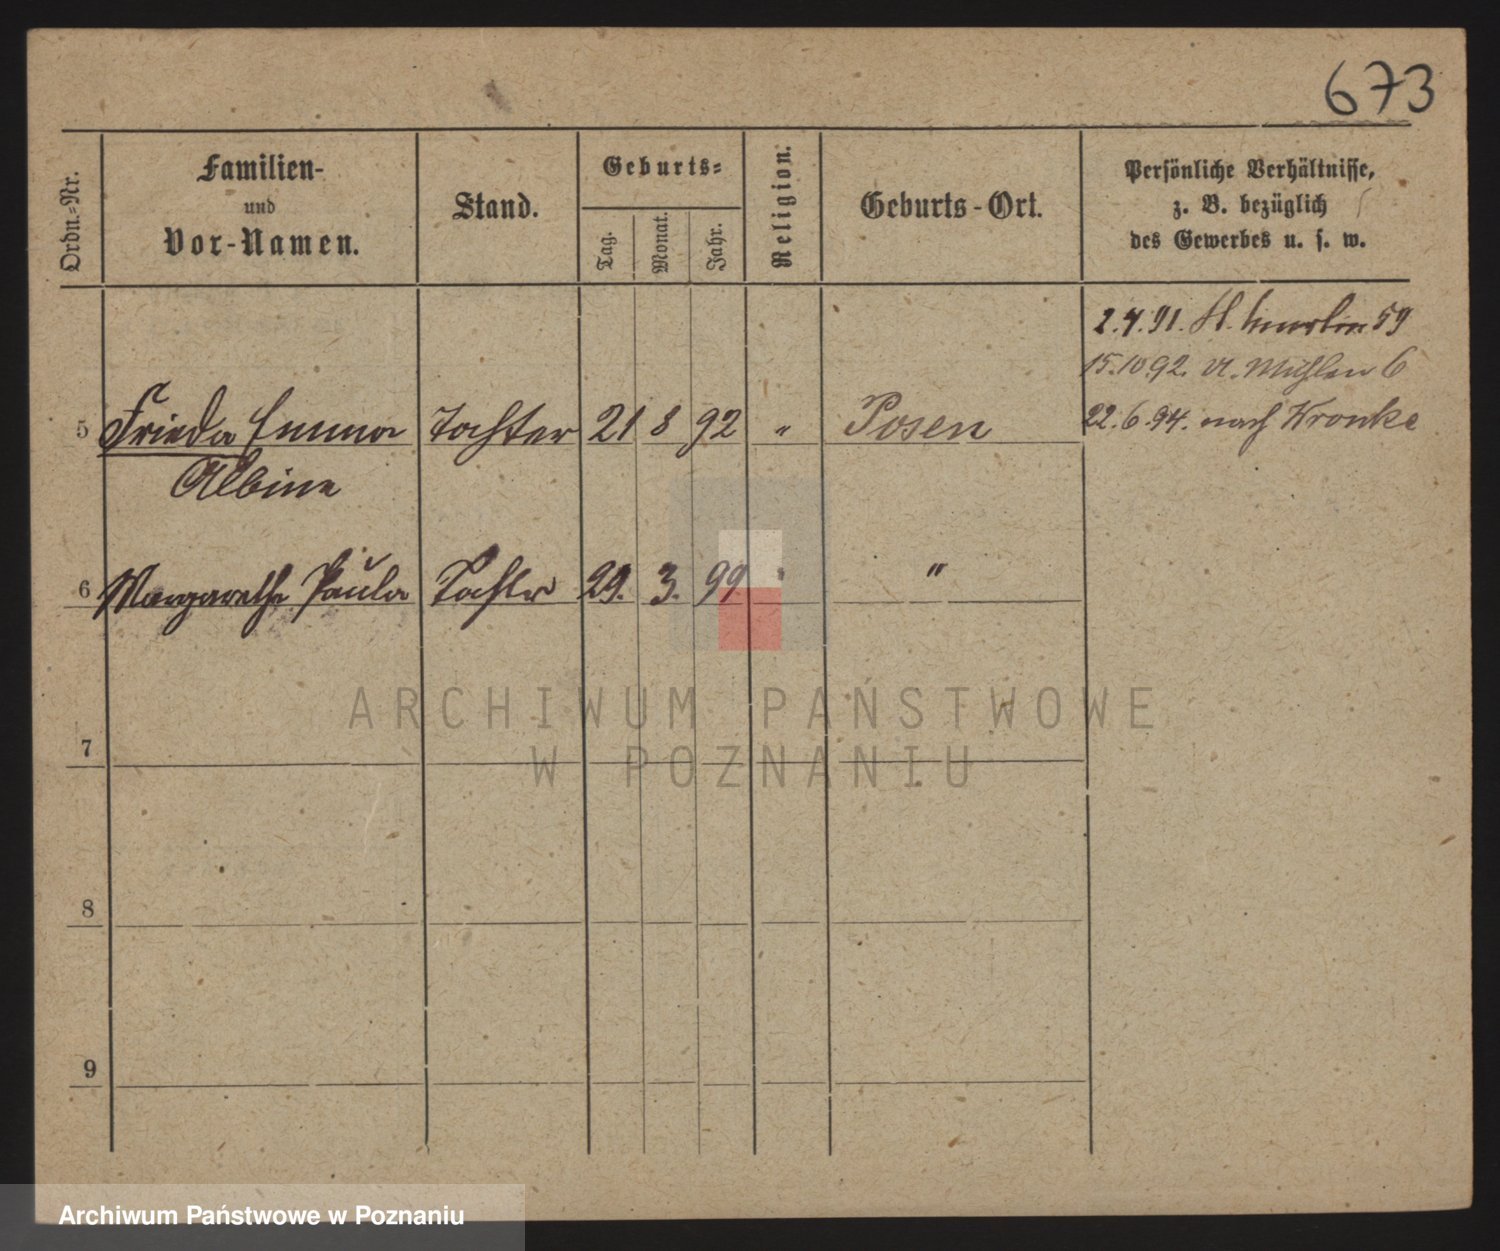 673
Ordn.-Nr.
Familien-
und
Vor-Namen.
Stand.
Geburts-
Tag.
Monat.
Jahr.
Religion.
Geburts-Ort.
Persönliche Verhältnisse,
z. B. bezüglich
des Gewerbes u. s. w.
2.4.91. St. 59
15.10.92. Mühlen 6
22.6.94. nach Wronke
5 Frieda Emma Tochter 21 8 92 " Posen
Albine
6 Margarethe Paula Tochter 29. 3. 99 " "
7
8
9
ARCHIWUM PAŃSTWOWE
W POZNANIU
Archiwum Państwowe w Poznaniu